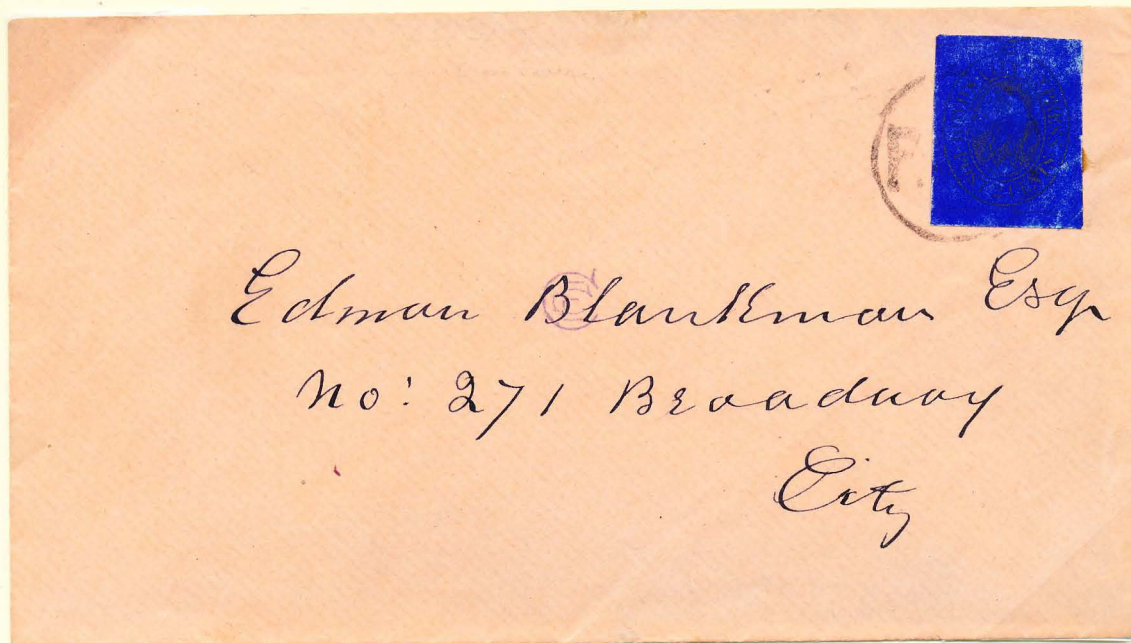 F.
Edman Blankman Esqr
No: 271 Broadway
City